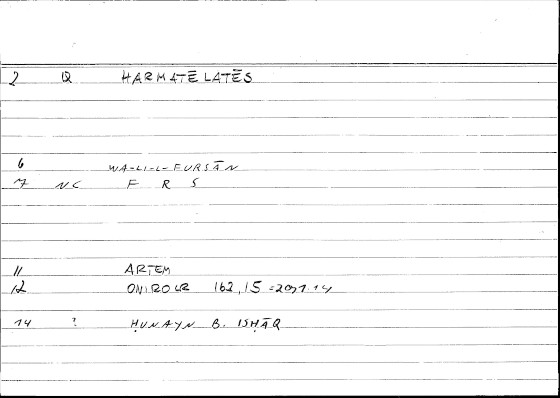 2 Q HARMATĒLATĒS
6 WA-LI-L-FURSĀN
7 NC F R S
11 ARTEM
12 ONIROCR 162,15 = 291.14
14 ? ḤUNAYN B. ISḤĀQ